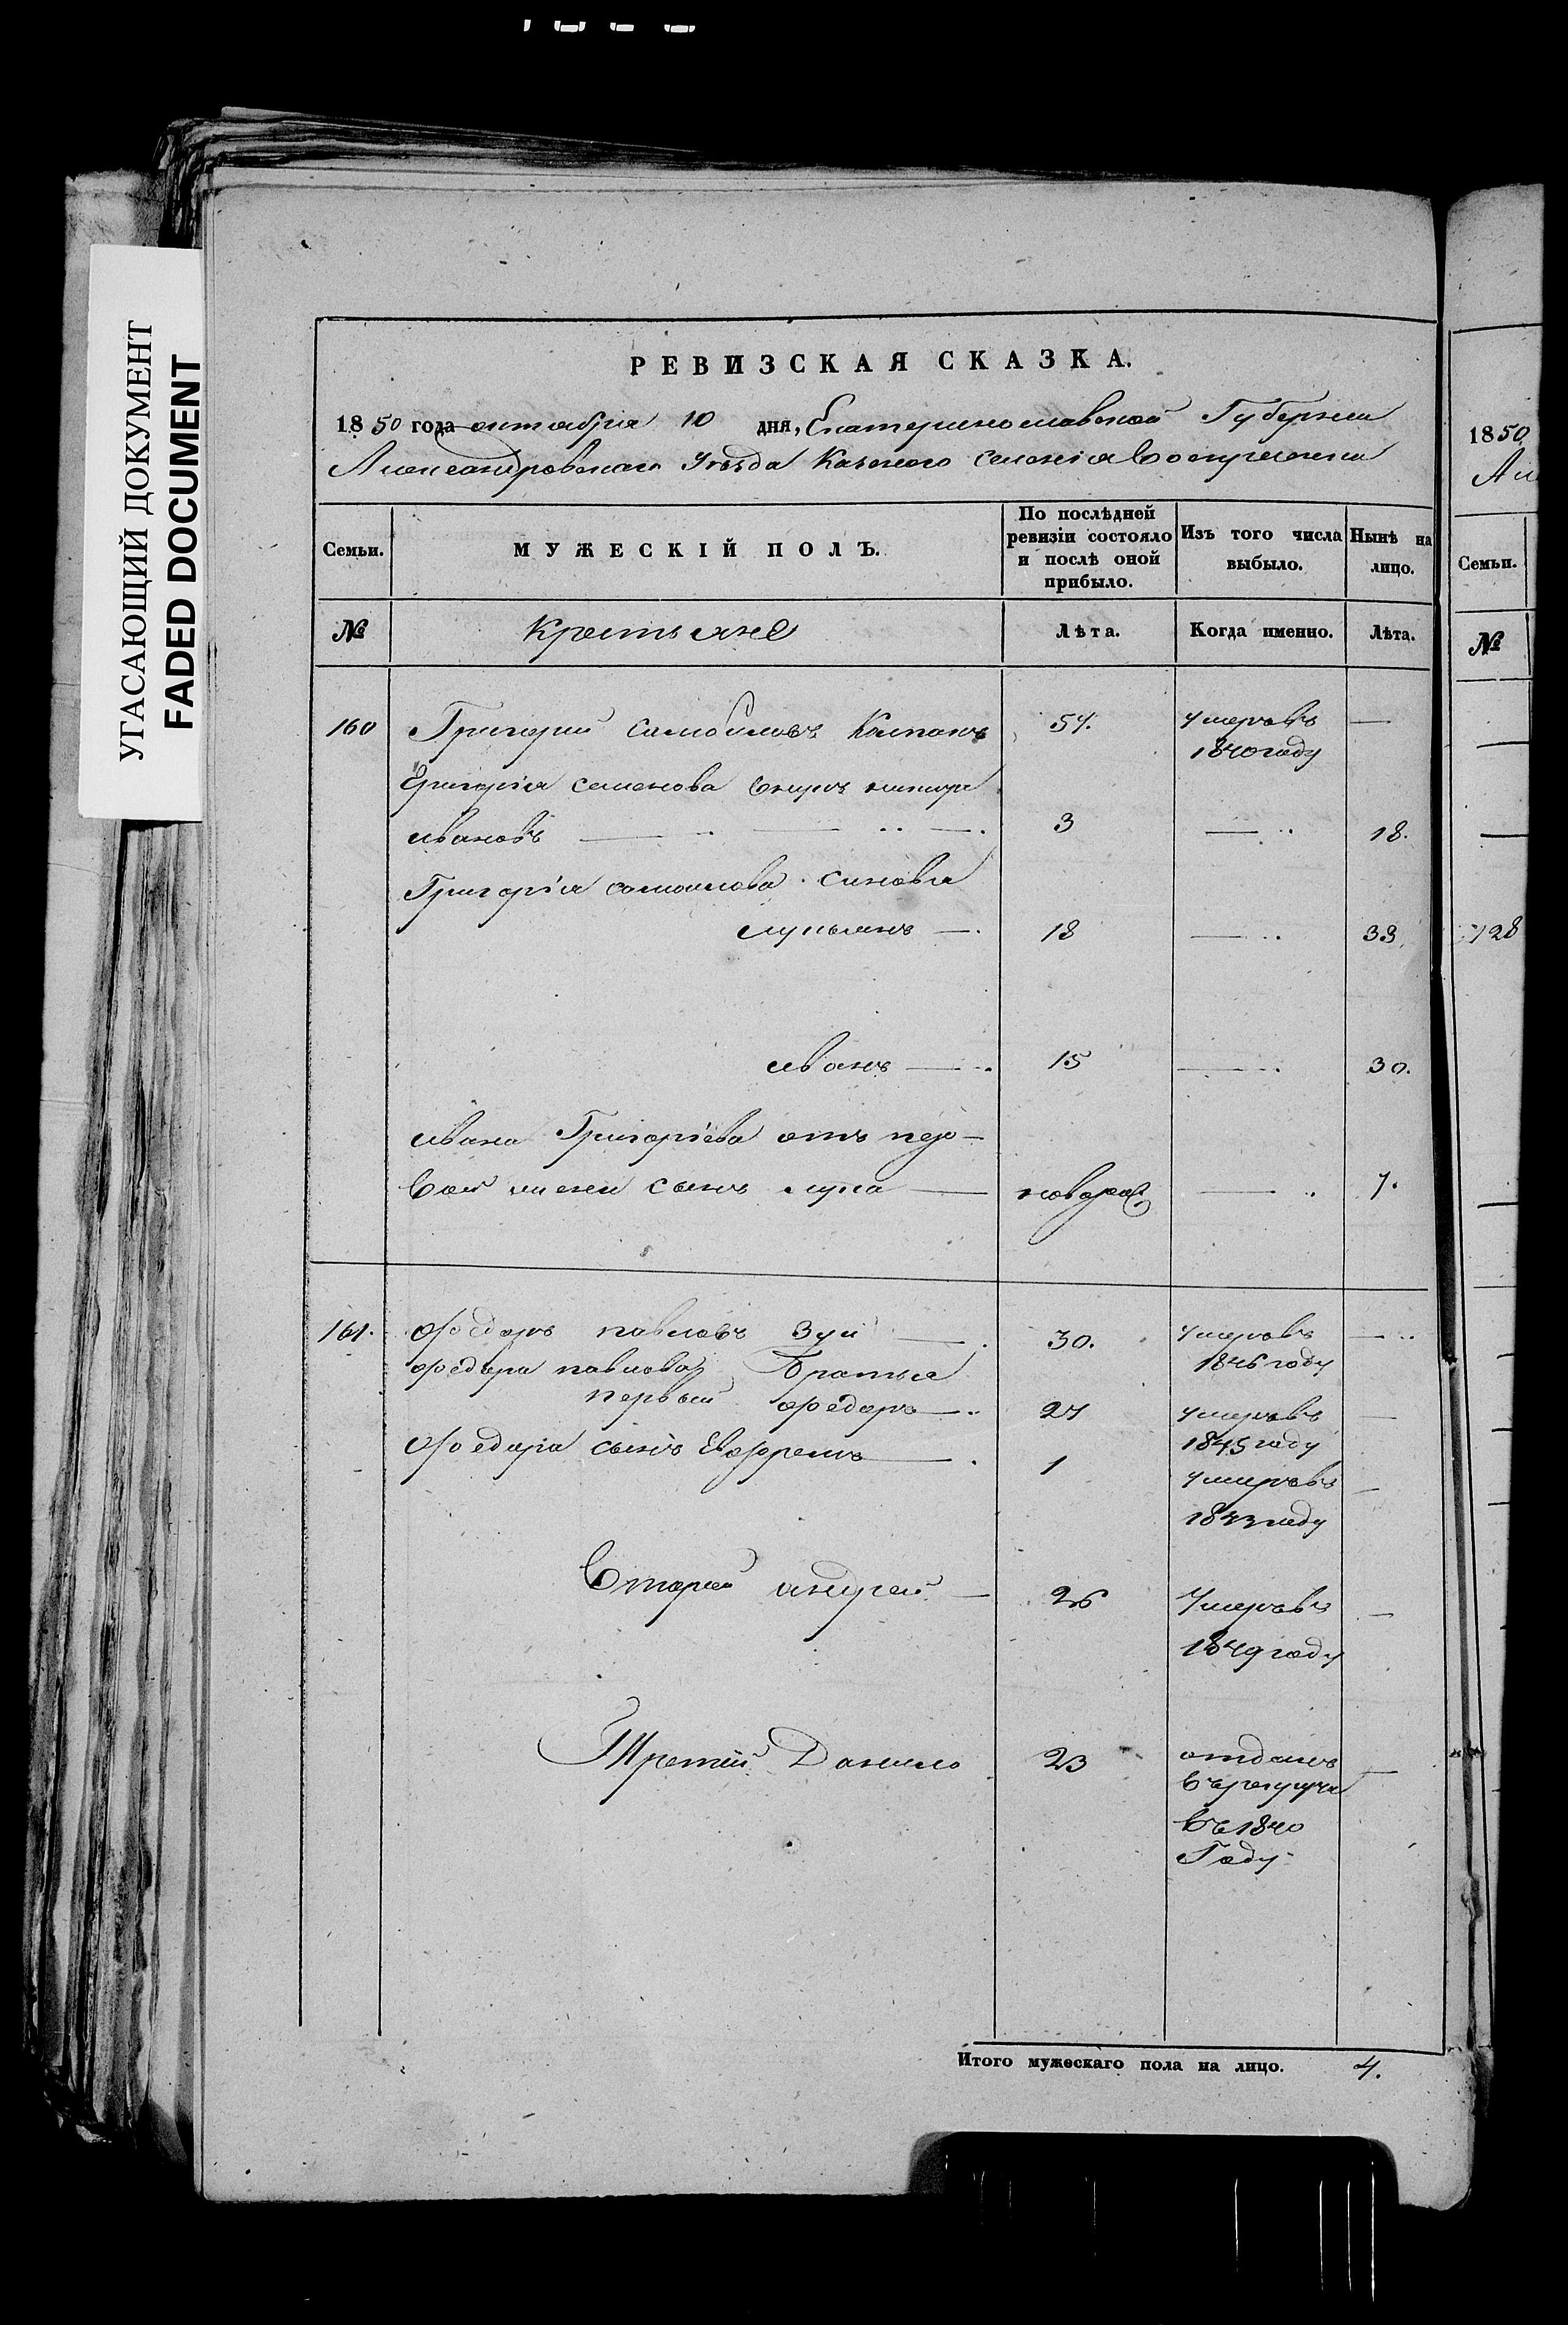 УГАСАЮЩИЙ ДОКУМЕНТ
FADED DOCUMENT
РЕВИЗСКАЯ СКАЗКА.
1850 года октября 10 дня, Екатеринославской Губернии
Александровскаго Уезда Казеного селения Воскресенки
Семьи.
МУЖЕСКІЙ ПОЛЪ.
По послѣдней ревизіи состояло и послѣ оной прибыло.
Изъ того числа выбыло.
Нынѣ на лицо.
№ Крестьяне Лѣта. Когда именно. Лѣта.
160 Григорий Самойловъ 54. умеръ въ —
1840 году
Григорія Семенова внукъ
Ивановъ — 3 — 18.
Григорія Самоилова синовья
Лукьянъ — 18 — 33
Иванъ — 15 — 30.
Ивана Григоріева отъ пер-
вой жени сынъ Лука — новорож — 7.
161. Федоръ Павловъ Зуй — 30. умеръ въ —
1846 году
Федора Павлова Братья
первый Федоръ — 27 умеръ въ —
1845 году
Федора сынъ Евфремъ — 1 умеръ въ —
1843 году
Вторий Андрей — 26 Умеръ въ —
1849 году
Третий Данило 23 отданъ —
въ рекруты
въ 1840
Году
Итого мужескаго пола на лицо. 4.
1850
Семьи.
№
128